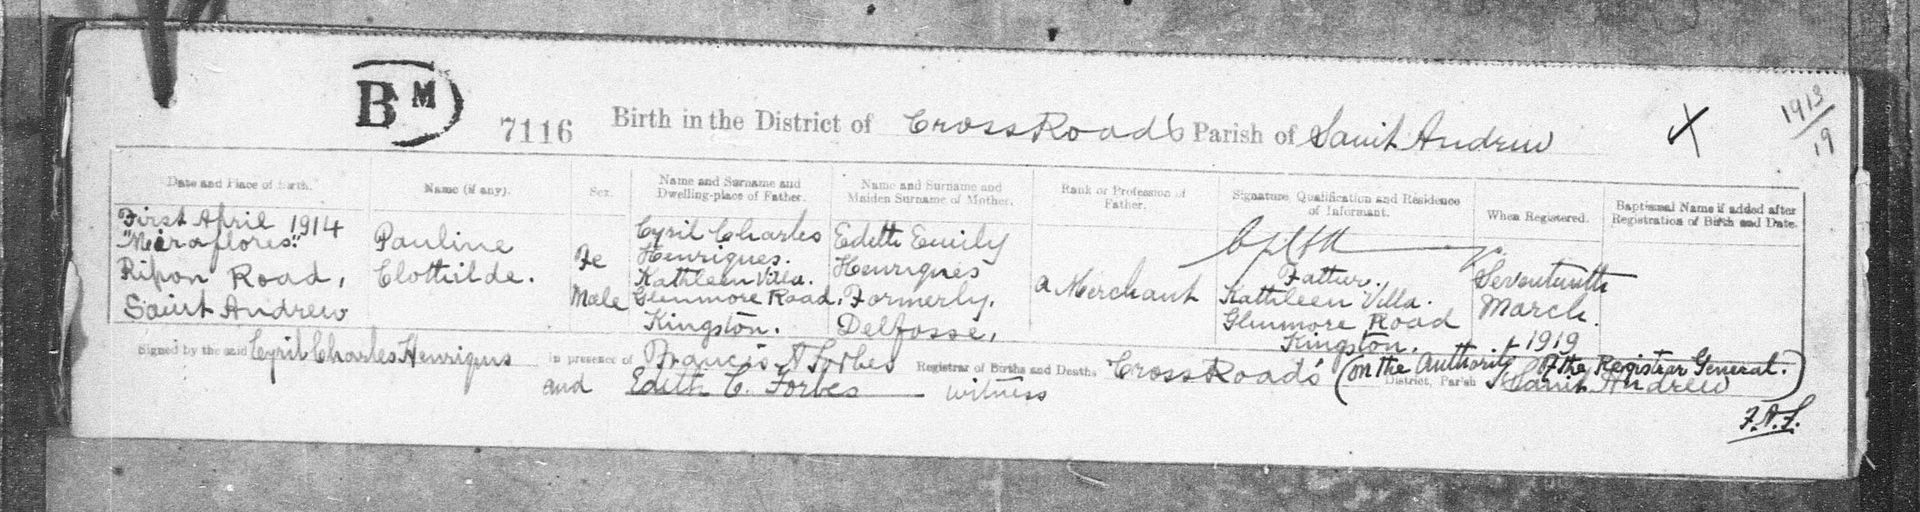 BM) 7116 Birth in the District of Cross Roads Parish of Saint Andrew X 1913/19
Date and Place of Birth. Name (if any). Sex. Name and Surname and Dwelling-place of Father. Name and Surname and Maiden Surname of Mother. Rank or Profession of Father. Signature, Qualification and Residence of Informant. When Registered. Baptismal Name if added after Registration of Birth and Date.
First April 1914
"Miraflores"
Ripon Road,
Saint Andrew
Pauline
Clothilde.
Fe
Male
Cyril Charles
Henriques.
Kathleen Villa.
Glenmore Road.
Kingston.
Edith Emily
Henriques
Formerly,
Delfosse,
a Merchant
Father.
Kathleen Villa.
Glenmore Road
Kingston.
Seventeenth
March.
1919
Signed by the said Cyril Charles Henriques in presence of Francis A Forbes Registrar of Births and Deaths Cross Roads (on the Authority of the Registrar General.)
and Edith C. Forbes witness District, Parish Saint Andrew
F.A.F.